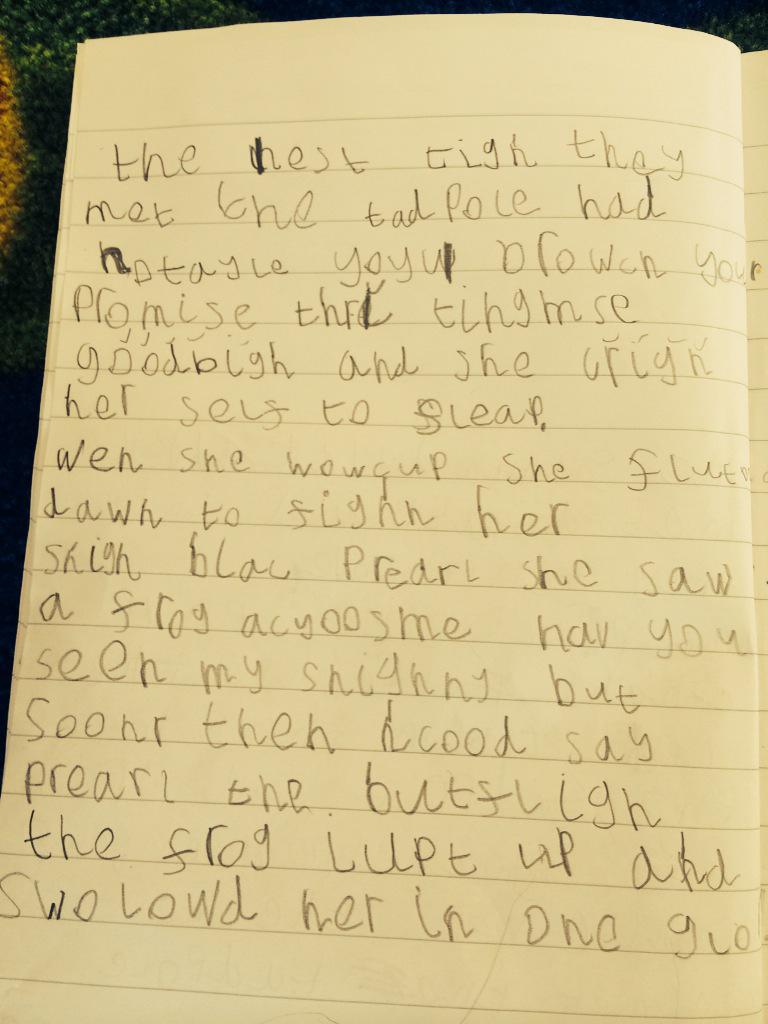 the nest tigh they
met the tadpole had
yoyu brown your
promise thre tingmse
goodbigh and she crigh
her self to sleap.
wen she wowcup she flut
dawn to fighn her
shigh blac prearl she saw
a frog acyoosme hav you
seen my shighny but
soonr then hcood say
prearl the butfligh
the frog lupt up and
swolowd her in one